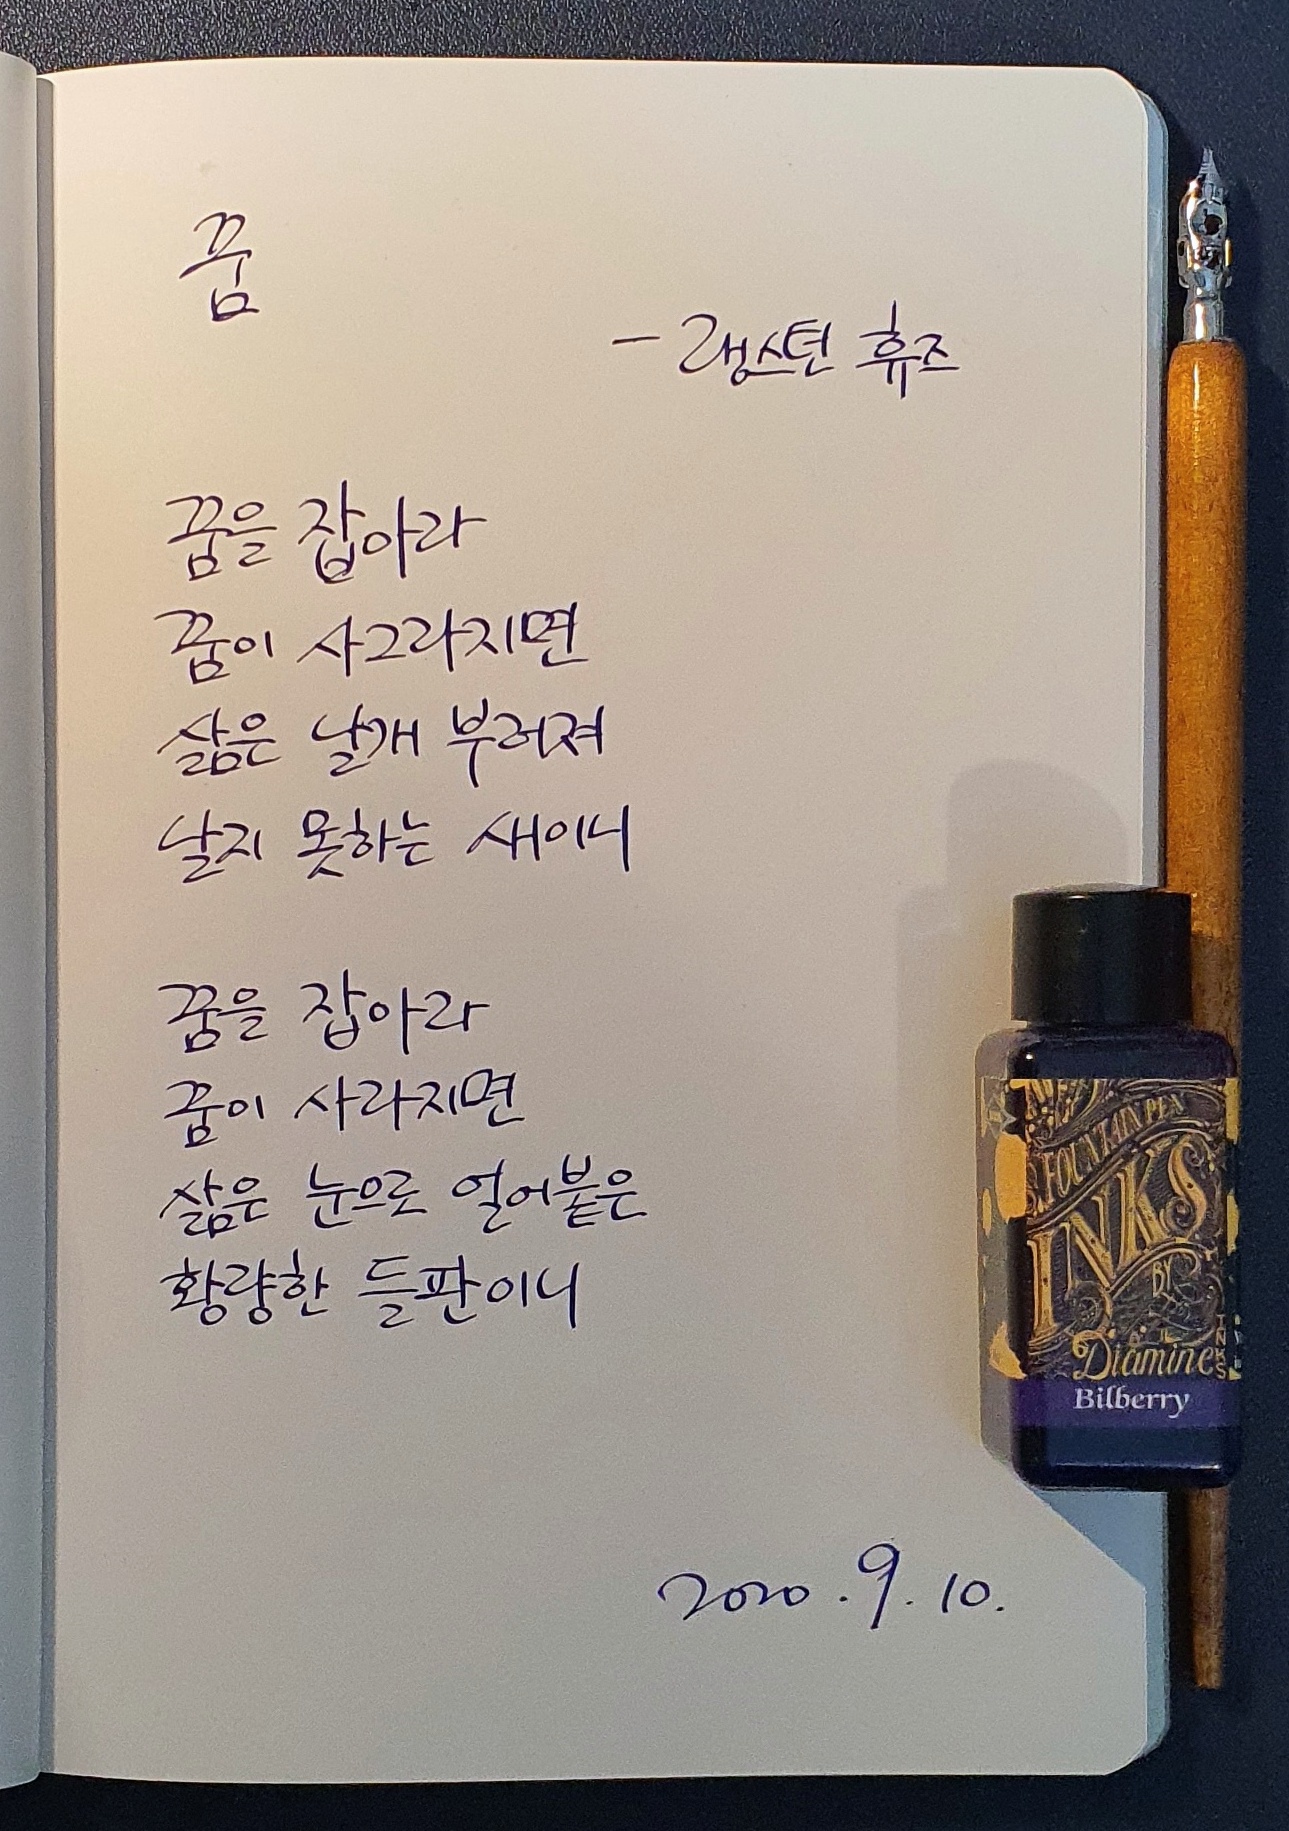 꿈
- 랭스턴 휴즈
꿈을 잡아라
꿈이 사그라지면
삶은 날개 부러져
날지 못하는 새이니
꿈을 잡아라
꿈이 사라지면
삶은 눈으로 얼어붙은
황량한 들판이니
FOUNTAIN PEN
INKS
BY
Diamine
Bilberry
2020. 9. 10.